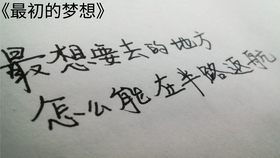 《最初的梦想》
最想要去的地方
怎么能在半路返航